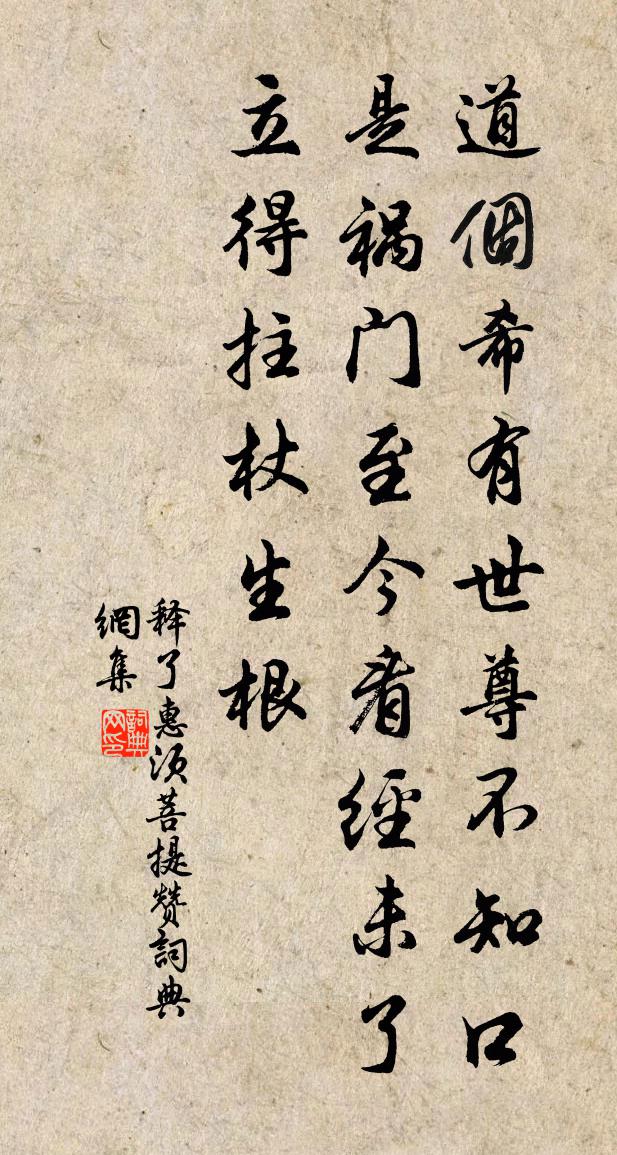 道個希有世尊不知口
是祸门至今看經未了
立得拄杖生根
释了惠须菩提赞詞典
網集
詞典
网印